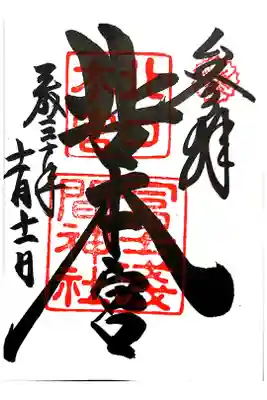 参拝
北口本宮
平成三十年
十一月十一日
北口
本宮
冨士浅
間神社